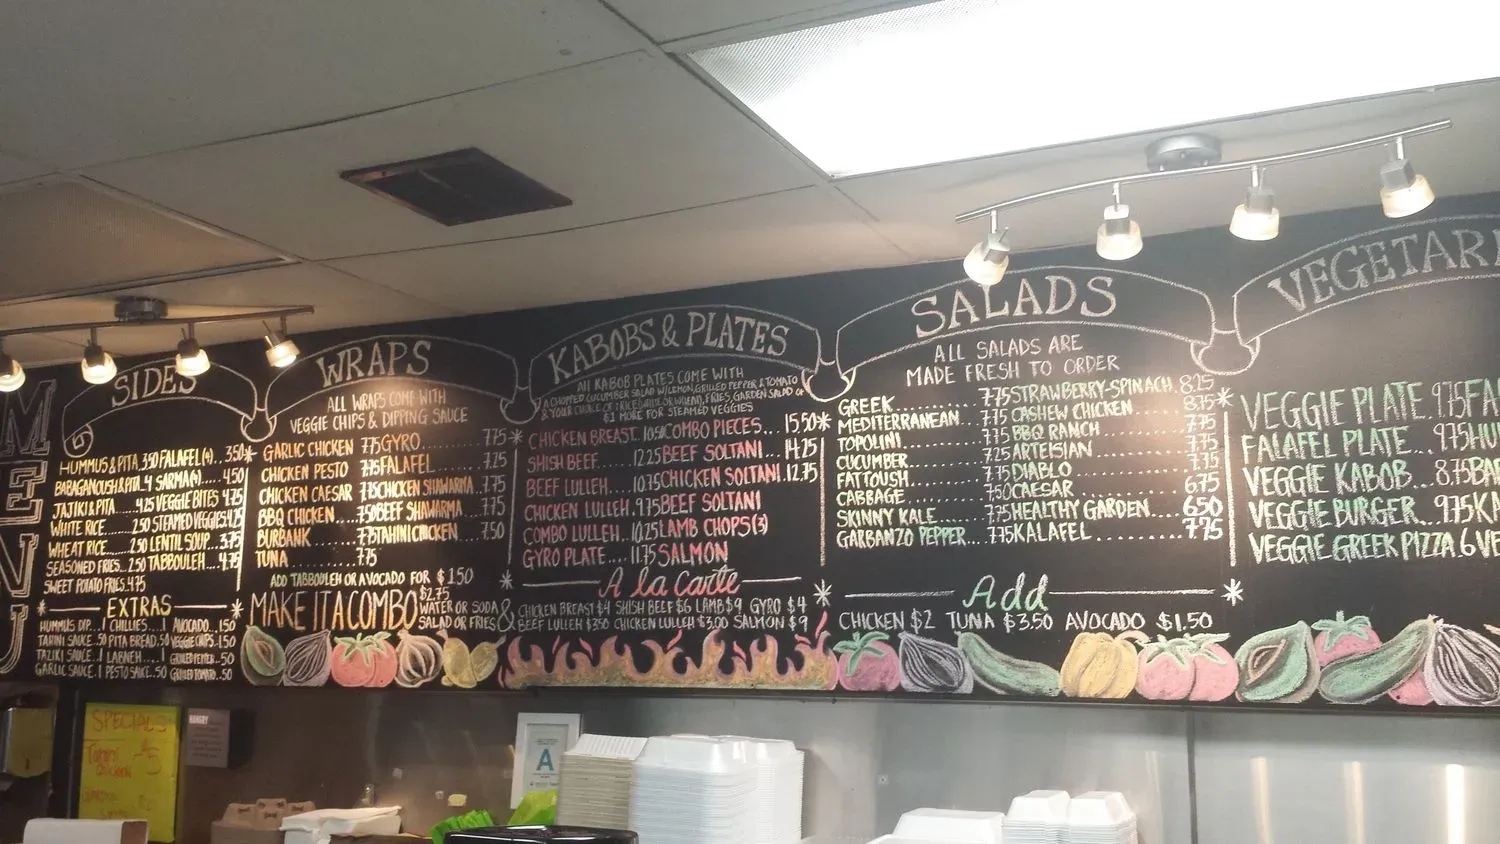 MENU
SIDES
HUMMUS & PITA 3.50 FALAFEL (4) .. 3.50
BABAGANOUSH & PITA 4 SARMA (4) ... 4.50
JAJIKI & PITA ..... 4.25 VEGGIE BITES 4.75
WHITE RICE ...... 2.50 STEAMED VEGGIES 4.25
WHEAT RICE ..... 2.50 LENTIL SOUP... 3.75
SEASONED FRIES... 2.50 TABBOULEH .. 4.75
SWEET POTATO FRIES. 4.75
EXTRAS
HUMMUS DIP...1 CHILLIES....1 AVOCADO..1.50
TAHINI SAUCE .50 PITA BREAD .50 VEGGIE CHIPS .1.50
TAZIKI SAUCE..1 LABNEH.....1 GRILLED PEPPER...50
GARLIC SAUCE. 1 PESTO SAUCE .50 GRILLED TOMATO..50
WRAPS
ALL WRAPS COME WITH
VEGGIE CHIPS & DIPPING SAUCE
GARLIC CHICKEN 7.75 GYRO ........... 7.75
CHICKEN PESTO 7.75 FALAFEL ......... 7.25
CHICKEN CAESAR 7.75 CHICKEN SHAWARMA ..7.75
BBQ CHICKEN ....7.50 BEEF SHAWARMA ....7.75
BURBANK ........7.75 TAHINI CHICKEN ....7.50
TUNA ...........7.75
ADD TABBOULEH OR AVOCADO FOR $1.50
MAKE IT A COMBO $2.75 WATER OR SODA & SALAD OR FRIES
KABOBS & PLATES
All KABOB PLATES COME WITH
A CHOPPED CUCUMBER SALAD W/LEMON, GRILLED PEPPER & TOMATO
& YOUR CHOICE OF RICE (WHITE OR WHEAT), FRIES, GARDEN SALAD OR
$1 MORE FOR STEAMED VEGGIES
CHICKEN BREAST. 10.50 COMBO PIECES... 15.50
SHISH BEEF...... 12.25 BEEF SOLTANI .... 14.25
BEEF LULLEH... 10.75 CHICKEN SOLTANI .12.75
CHICKEN LULLEH . 9.75 BEEF SOLTANI
COMBO LULLEH. 10.25 LAMB CHOPS (3)
GYRO PLATE.... 11.75 SALMON
A la carte
CHICKEN BREAST $4 SHISH BEEF $6 LAMB $9 GYRO $4
BEEF LULLEH $3.50 CHICKEN LULLEH $3.00 SALMON $9
SALADS
ALL SALADS ARE
MADE FRESH TO ORDER
GREEK......... 7.75 STRAWBERRY-SPINACH. 8.25
MEDITERRANEAN. 7.75 CASHEW CHICKEN ... 8.75
TOPOLINI ....... 7.75 BBQ RANCH ....... 7.75
CUCUMBER ...... 7.25 ARTEISIAN ....... 7.75
FATTOUSH ...... 7.75 DIABLO ......... 7.75
CABBAGE ....... 7.50 CAESAR ......... 6.75
SKINNY KALE .... 7.75 HEALTHY GARDEN.... 6.50
GARBANZO PEPPER... 7.75 KALAFEL ......... 7.75
Add
CHICKEN $2 TUNA $3.50 AVOCADO $1.50
VEGETARI
VEGGIE PLATE . 9.75 FA
FALAFEL PLATE... 9.75 HU
VEGGIE KABOB... 8.75 BA
VEGGIE BURGER... 7.75 KA
VEGGIE GREEK PIZZA 6 VE
SPECIALS
CHICKEN
HUNGRY
A